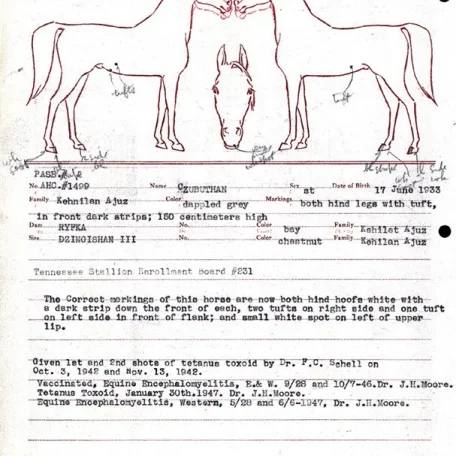 tufts
tuft
PASB.
No. AHC.#1499 Name CZUBUTHAN Sex st Date of Birth 17 June 1933
Family Kehnilan Ajuz Color dappled grey Markings both hind legs with tuft,
in front dark strips; 150 centimeters high
Dam RYFKA No. Color bay Family Kehilet Ajuz
Sire DZINGISHAN III No. Color chestnut Family Kehilan Ajuz
Tennessee Stallion Enrollment Board #231
The Correct markings of this horse are now both hind hoofs white with
a dark strip down the front of each, two tufts on right side and one tuft
on left side in front of flank; and small white spot on left of upper
lip.
Given 1st and 2nd shots of tetanus toxoid by Dr. F.C. Schell on
Oct. 3, 1942 and Nov. 13, 1942.
Vaccinated, Equine Encephalomyelitis, E.& W. 9/28 and 10/7-46.Dr. J.H.Moore.
Tetanus Toxoid, January 30th.1947. Dr. J.H.Moore.
Equine Encephalomyelitis, Western, 5/28 and 6/6-1947, Dr. J.H.Moore.